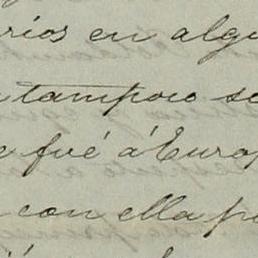 rios en algu
tampoco se
e fué á Europ
con ella p